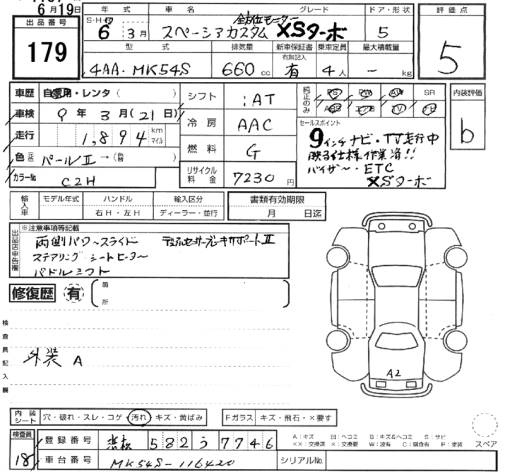 6月19日
出品番号 179
年式 車名 グレード ドア・形状 評価点
S・H・R 6年 3月 スペーシアカスタム 全方位モニター XSターボ 5 5
型式 排気量 新車保証書 乗車定員 最大積載量
4AA・MK54S 660cc 有 4人 － kg
車歴 自家用・レンタ
車検 9年 3月 (21日)
走行 1,894 km マイル
色 パールII →
カラーNo C2H
シフト :AT
冷房 AAC
燃料 G
リサイクル料金 7230円
純正のみ SR
内装評価 b
セールスポイント
9インチナビ・TV走行中
映る仕様作業済!!
バイザー・ETC
XSターボ
輸入車 モデル年式 ハンドル 輸入区分
年 右H・左H ディーラー・並行
書類有効期限
月 日迄
※注意事項等記載
両側パワースライド デュアルセンサーブレーキサポートII
ステアリング シートヒーター
パドルシフト
修復歴 有 箇所
検査員記入欄
外装 A
A2
内装シート 穴・破れ・スレ・コゲ 汚れ キズ・黄ばみ
Fガラス キズ・飛石・×要す
検査員 18
登録番号 浜松 582 う 7746
車台番号 MK54S-116420
シリアルNo.
スペア